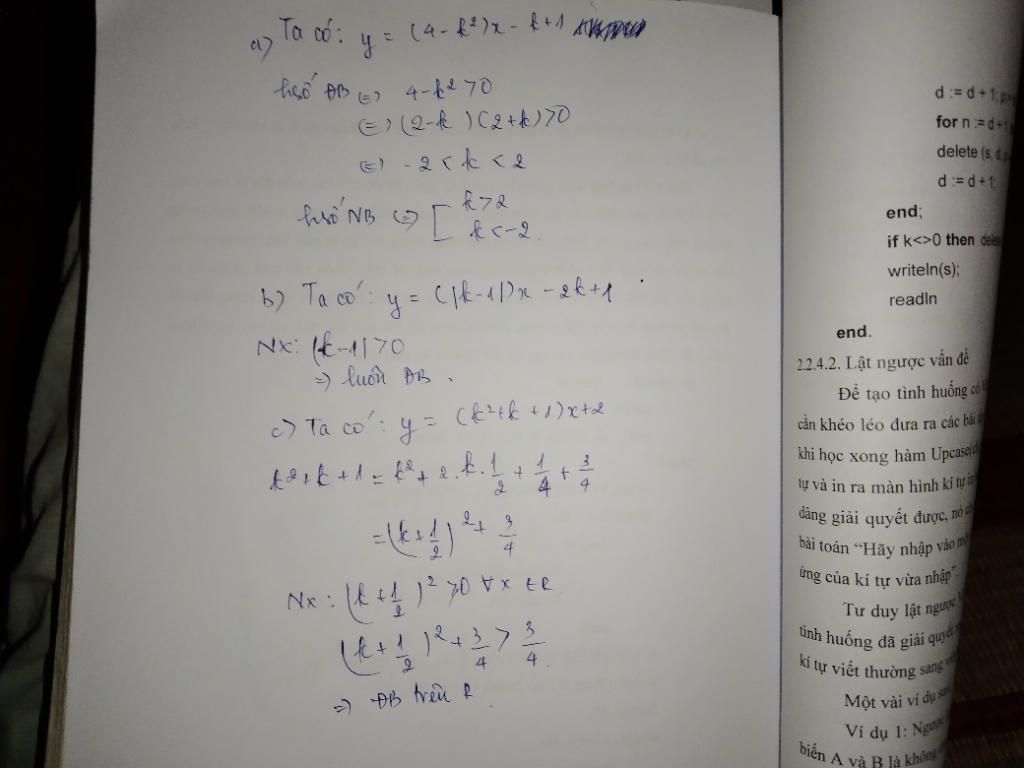 a) Ta có: y = (4 - k²)x - k + 1
hsố ĐB <=> 4 - k² > 0
<=> (2 - k)(2 + k) > 0
<=> -2 < k < 2
hsố NB <=> [ k > 2
k < -2.
b) Ta có: y = (|k-1|)x - 2k + 1
Nx: |k-1| > 0
=> luôn ĐB.
c) Ta có: y = (k² + k + 1)x + 2
k² + k + 1 = k² + 2.k.1/2 + 1/4 + 3/4
= (k + 1/2)² + 3/4
Nx: (k + 1/2)² ≥ 0 ∀x ∈ R
(k + 1/2)² + 3/4 > 3/4.
=> ĐB trên R.
d := d + 1;
for n := d +
delete (s, d,
d := d + 1;
end;
if k<>0 then
writeln(s);
readln
end.
2.2.4.2. Lật ngược vấn đề
Để tạo tình huống có
cần khéo léo đưa ra các bài
khi học xong hàm Upcase(
tự và in ra màn hình kí tự in
dàng giải quyết được, nó
bài toán “Hãy nhập vào
ứng của kí tự vừa nhập”.
Tư duy lật ngược
tình huống đã giải quyết
kí tự viết thường sang
Một vài ví dụ sau
Ví dụ 1: Ngược
biến A và B là không